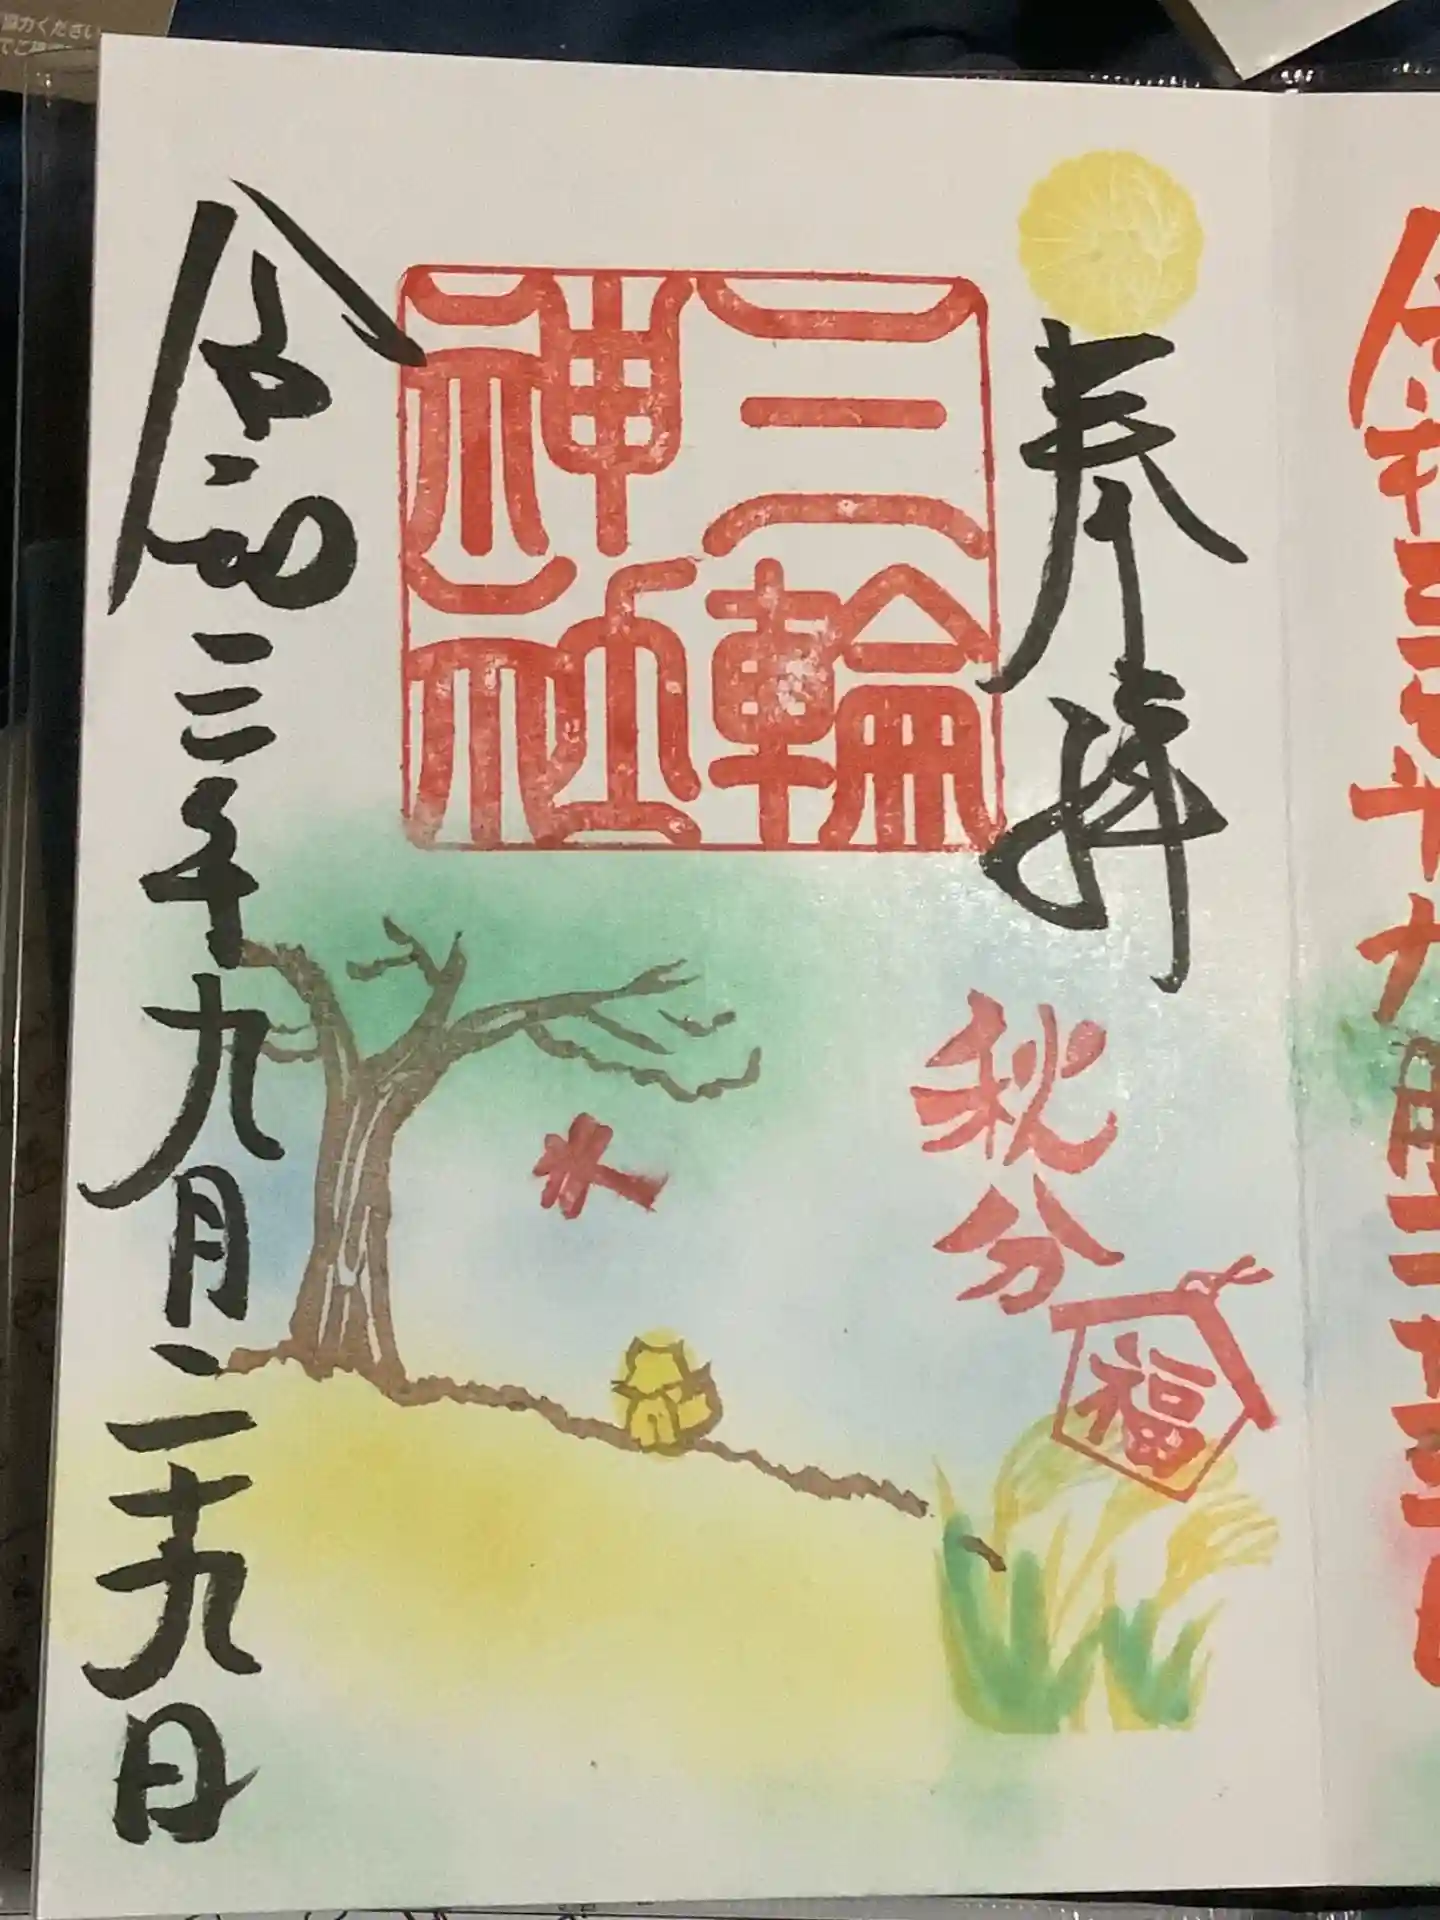 協力ください
奉拝
三輪
神社
秋分
福
令和三年九月二十九日
令和三年九月二十